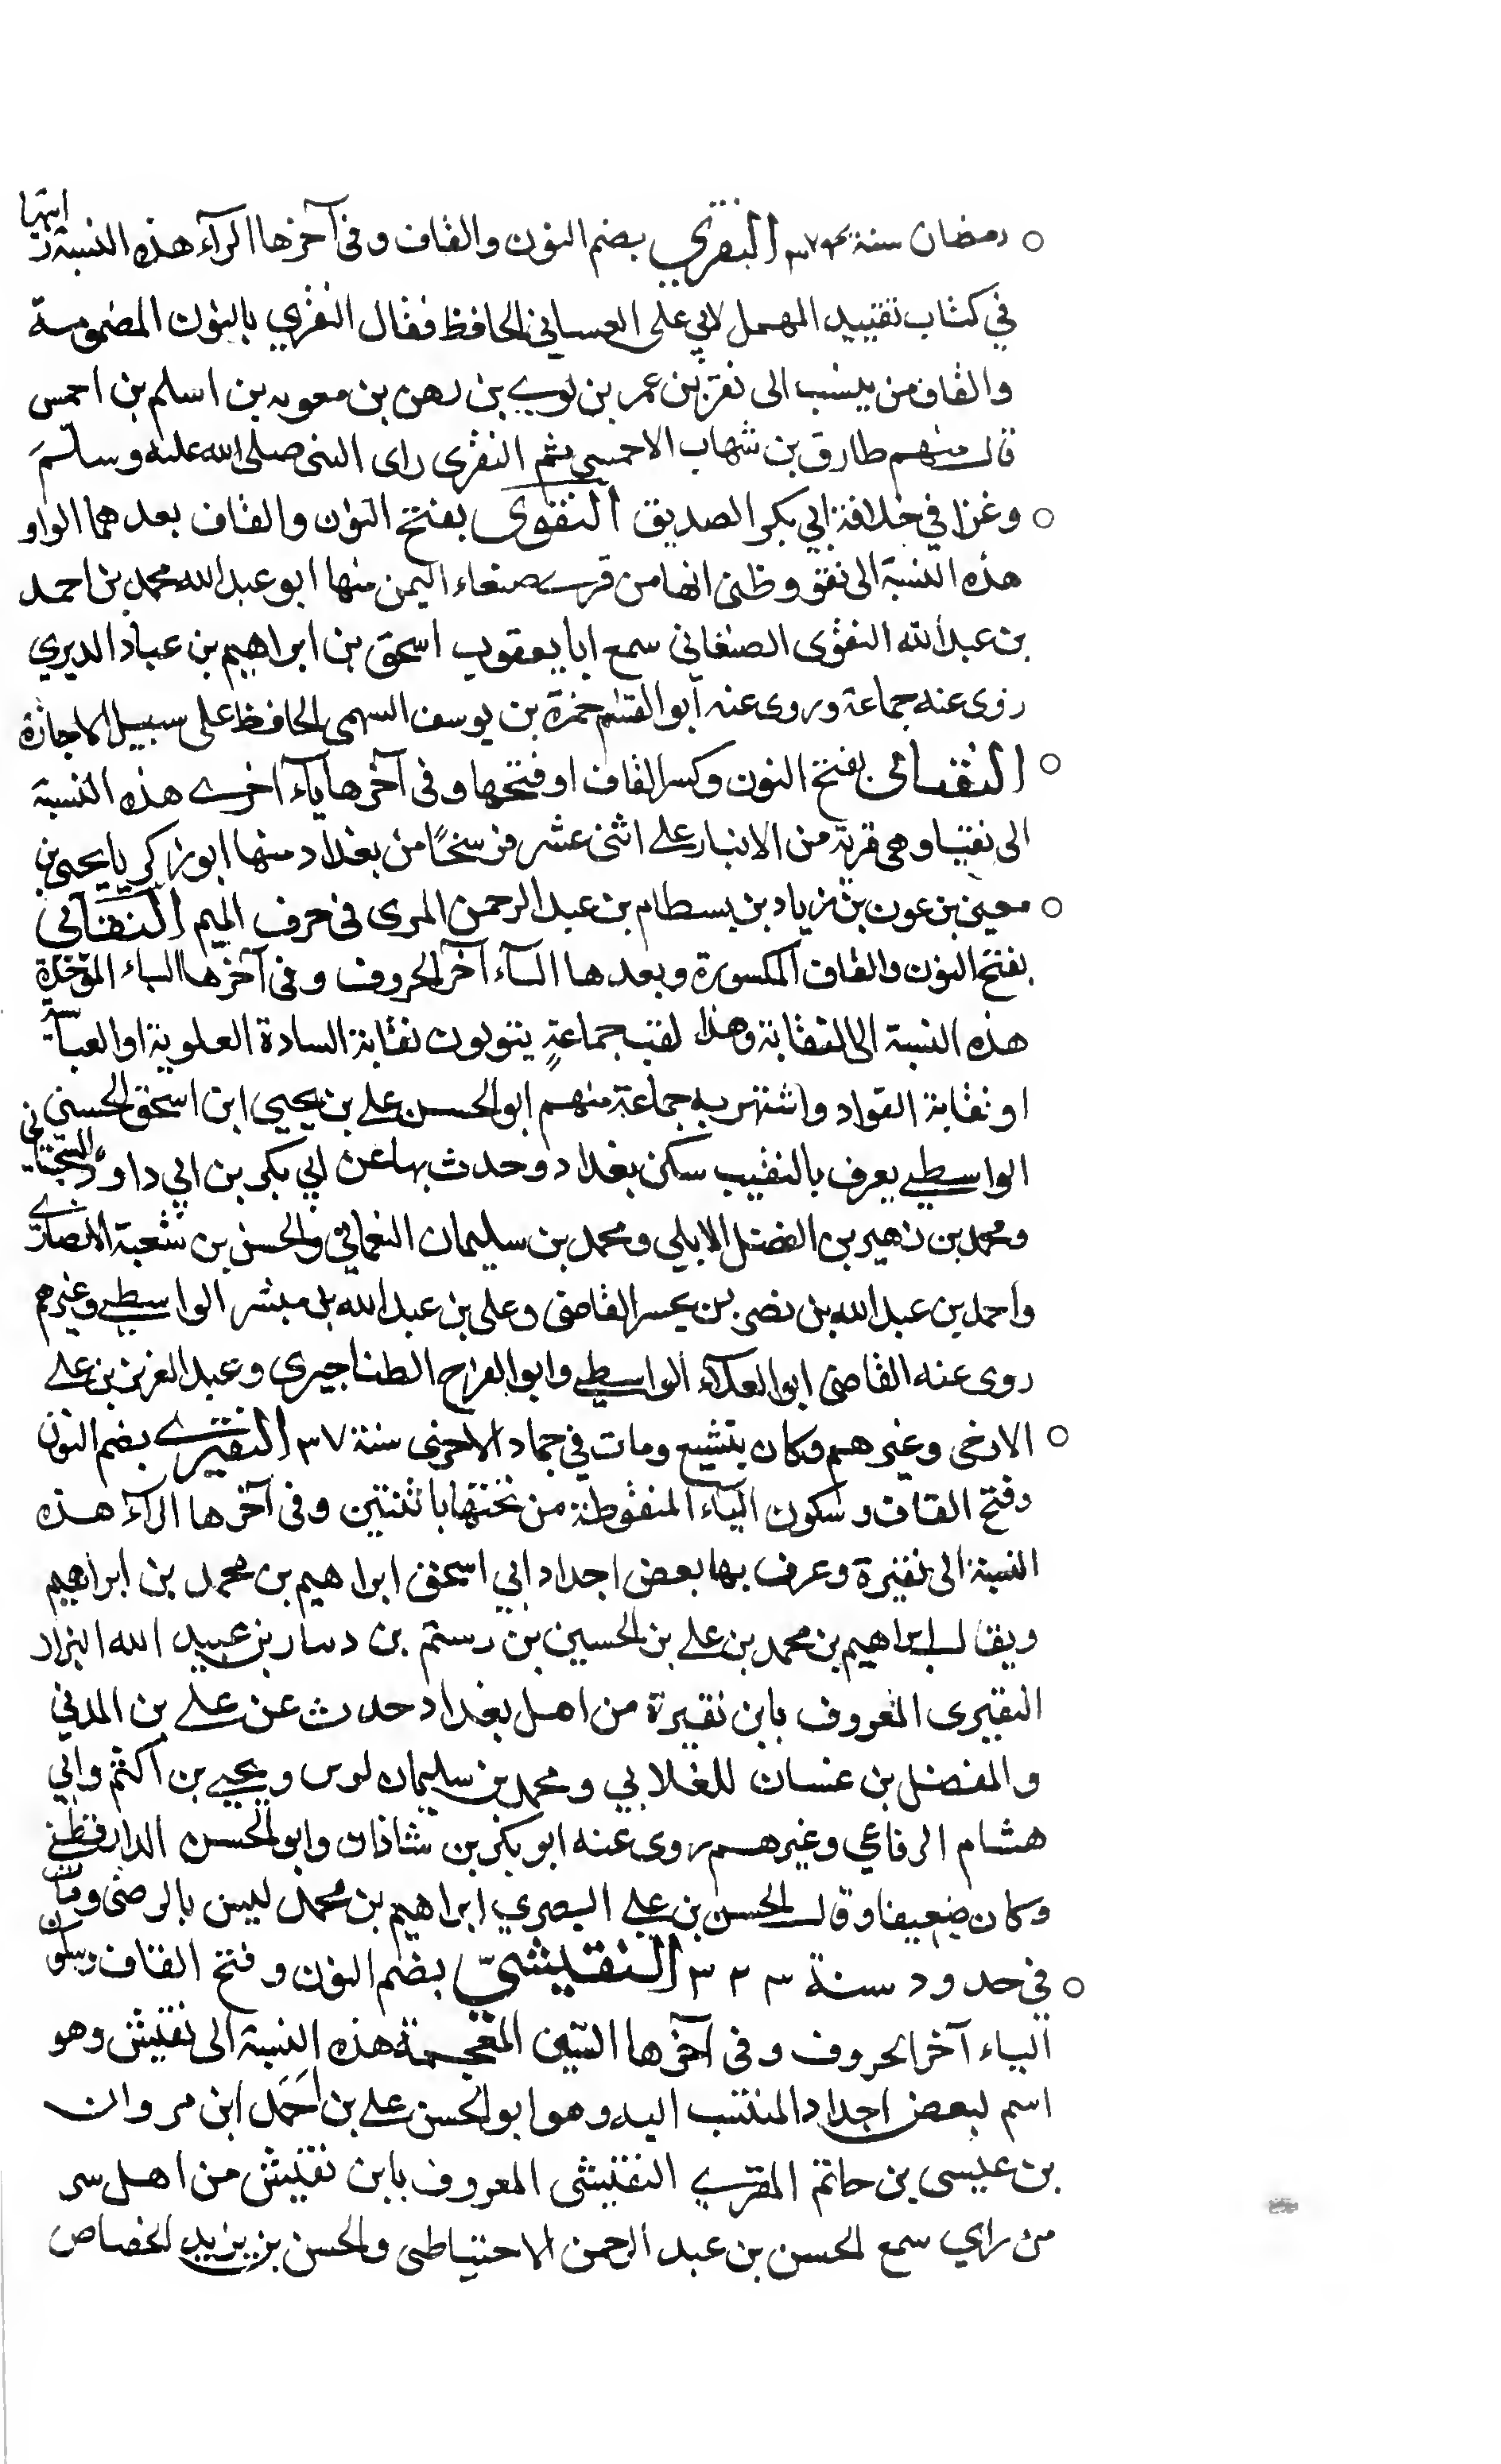 رمضان سنة النقري بضم النون والقاف وفى آخرها الرآء هذه النسبة رايتها
في كتاب تقييد المهمل لابي على العسانى الحافظ فقال النقري بالنون المضمومة
والقاف من ينسب الى نقر بن عمر بن لوي بن رهن بن معويه بن اسلم بن احمس
قال منهم طارق بن شهاب الاحمسي ثم النقرى راى النبى صلى الله عليه وسلم
وغزا في خلافة ابي بكر الصديق النقوى بفتح النون والقاف بعدهما الواو
هذه النسبة الى نقو وظنى انها من قرى صنعاء اليمن منها ابو عبد الله محمد بن احمد
بن عبد الله النقوى الصنعاني سمع ابا يعقوب اسحق بن ابراهيم بن عباد الديري
روى عنه جماعة وروى عنه ابو القسم حمزة بن يوسف السهمى الحافظ على سبيل الاجازة
النقيائى بفتح النون وكسر القاف او فتحها وفى آخرها ياء اخرى هذه النسبة
الى نقيا وهى قرية من الانبار على اثنى عشر فرسخًا من بغداد منها ابو زكريا يحيى بن
معين بن عون بن زياد بن بسطام بن عبد الرحمن المرى فى حرف الميم النقابى
بفتح النون والقاف المكسورة وبعدها اليآء آخر الحروف وفى آخرها الباء الموحدة
هذه النسبة الى النقابة وهذا لقب جماعةٍ يتولون نقابة السادة العلوية او العباسية
او نقابة القواد واشتهر به جماعة منهم ابو الحسن على بن يحيى ابن اسحق الحسنى
الواسطى يعرف بالنقيب سكن بغداد وحدث بها عن ابي بكر بن ابي داود السجستانى
ومحمد بن زهير بن الفضل الابلى ومحمد بن سليمان النعمانى والحسن بن شعبة الانصارى
واحمد بن عبد الله بن نصر بن القاضى وعلى بن عبد الله بن مبشر الواسطى وغيرهم
روى عنه القاضى ابو العلآء الواسطى وابو الفرج الطناجيرى وعبد العزيز بن على
الازجى وغيرهم وكان يتشيع ومات في جماد الاخرى سنة ٣٧ النقيرى بضم النون
وفتح القاف وسكون الياء المنقوطة من تحتها باثنتين وفى آخرها الرآء هذه
النسبة الى نقيرة وعرف بها بعض اجداد ابي اسحق ابراهيم بن محمد بن ابراهيم
ويقال ابراهيم بن محمد بن على بن الحسين بن رستم بن دينار بن عبيد الله البزاد
النقيرى المعروف بابن نقيرة من اهل بغداد حدث عن على بن المدنى
والمفضل بن غسان للغلابي ومحمد بن سليمان لوين ويحيى بن اكثم وابي
هشام الرفاعي وغيرهم روى عنه ابو بكر بن شاذان وابو الحسن الدارقطنى
وكان ضعيفا وقال الحسن بن على البصري ابراهيم بن محمد ليس بالرضى ومات
في حدود سنة ٣٢٣ النقيشىّ بضم النون وفتح القاف وسكون
الياء آخر الحروف وفى آخرها الشين المعجمة هذه النسبة الى نقيش وهو
اسم لبعض اجداد المنتسب اليه وهو ابو الحسن على بن احمد ابن مروان
بن عيسى بن حاتم المقرى النقيشى المعروف بابن نقيش من اهل سر
من راي سمع الحسن بن عبد الرحمن الاحتياطى والحسن بن يزيد الخصاص